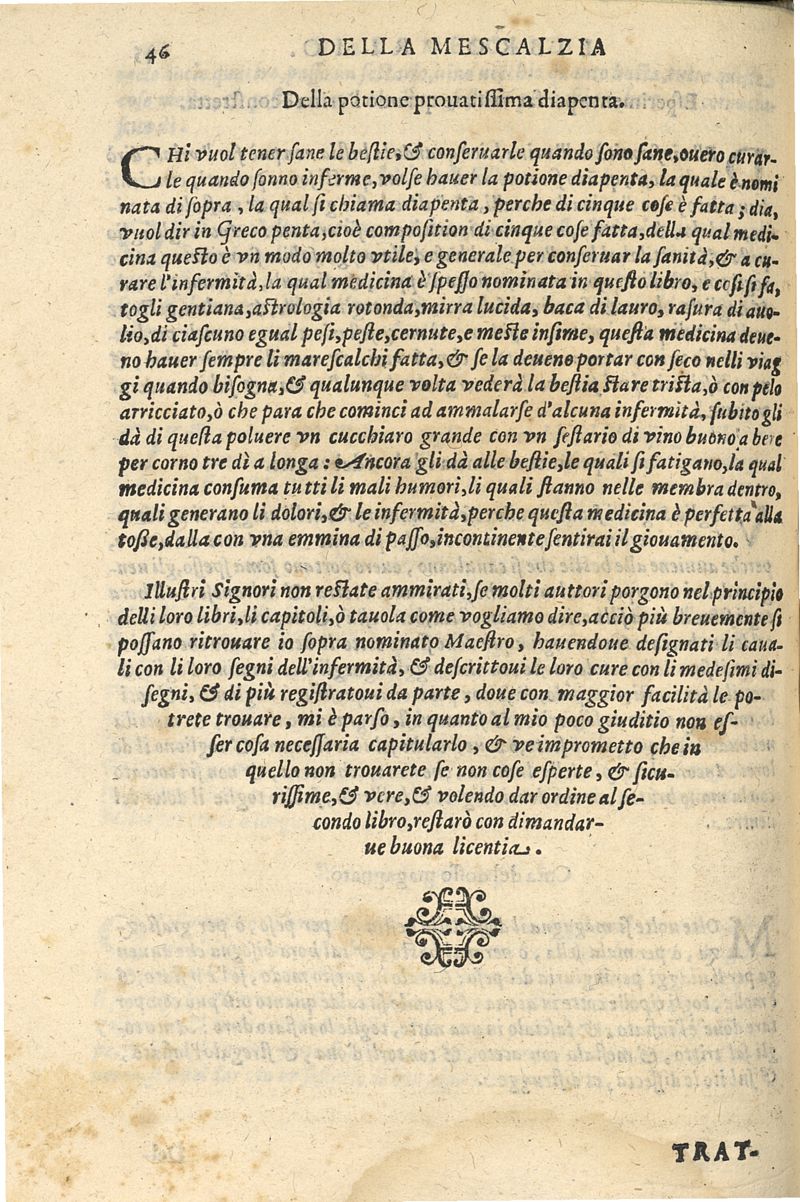 46
DELLA MESCALZIA
Della potione prouatissima diapenta.
CHi vuol tener sane le bestie, & conseruarle quando sono sane, ouero curar-
le quando sonno inferme, volse hauer la potione diapenta, la quale è nomi
nata di sopra, la qual si chiama diapenta, perche di cinque cose è fatta; dia,
vuol dir in Greco penta, cioè composition di cinque cose fatta, della qual medi-
cina questo è vn modo molto vtile, e generale per conseruar la sanità, & a cu-
rare l'infermità, la qual medicina è spesso nominata in questo libro, e cosi si fa,
togli gentiana, astrologia rotonda, mirra lucida, baca di lauro, rasura di auo-
lio, di ciascuno egual pesi, peste, cernute, e meste insime, questa medicina deue-
no hauer sempre li marescalchi fatta, & se la deueno portar con seco nelli viag
gi quando bisogna, & qualunque volta vederà la bestia stare trista, ò con pelo
arricciato, ò che para che cominci ad ammalarse d'alcuna infermità, subito gli
dà di questa poluere vn cucchiaro grande con vn sestario di vino buono a bere
per corno tre dì a longa: Ancora gli dà alle bestie, le quali si fatigano, la qual
medicina consuma tutti li mali humori, li quali stanno nelle membra dentro,
quali generano li dolori, & le infermità, perche questa medicina è perfetta alla
tosse, dalla con vna emmina di passo, incontinente sentirai il giouamento.
Illustri Signori non restate ammirati, se molti auttori porgono nel principio
delli loro libri, li capitoli, ò tauola come vogliamo dire, acciò più breuemente si
possano ritrouare io sopra nominato Maestro, hauendoue designati li caua-
li con li loro segni dell'infermità, & descrittoui le loro cure con li medesimi di-
segni, & di più registratoui da parte, doue con maggior facilità le po-
trete trouare, mi è parso, in quanto al mio poco giuditio non es-
ser cosa necessaria capitularlo, & ve imprometto che in
quello non trouarete se non cose esperte, & sicu-
rissime, & vere, & volendo dar ordine al se-
condo libro, restarò con dimandar-
ue buona licentia.
TRAT-